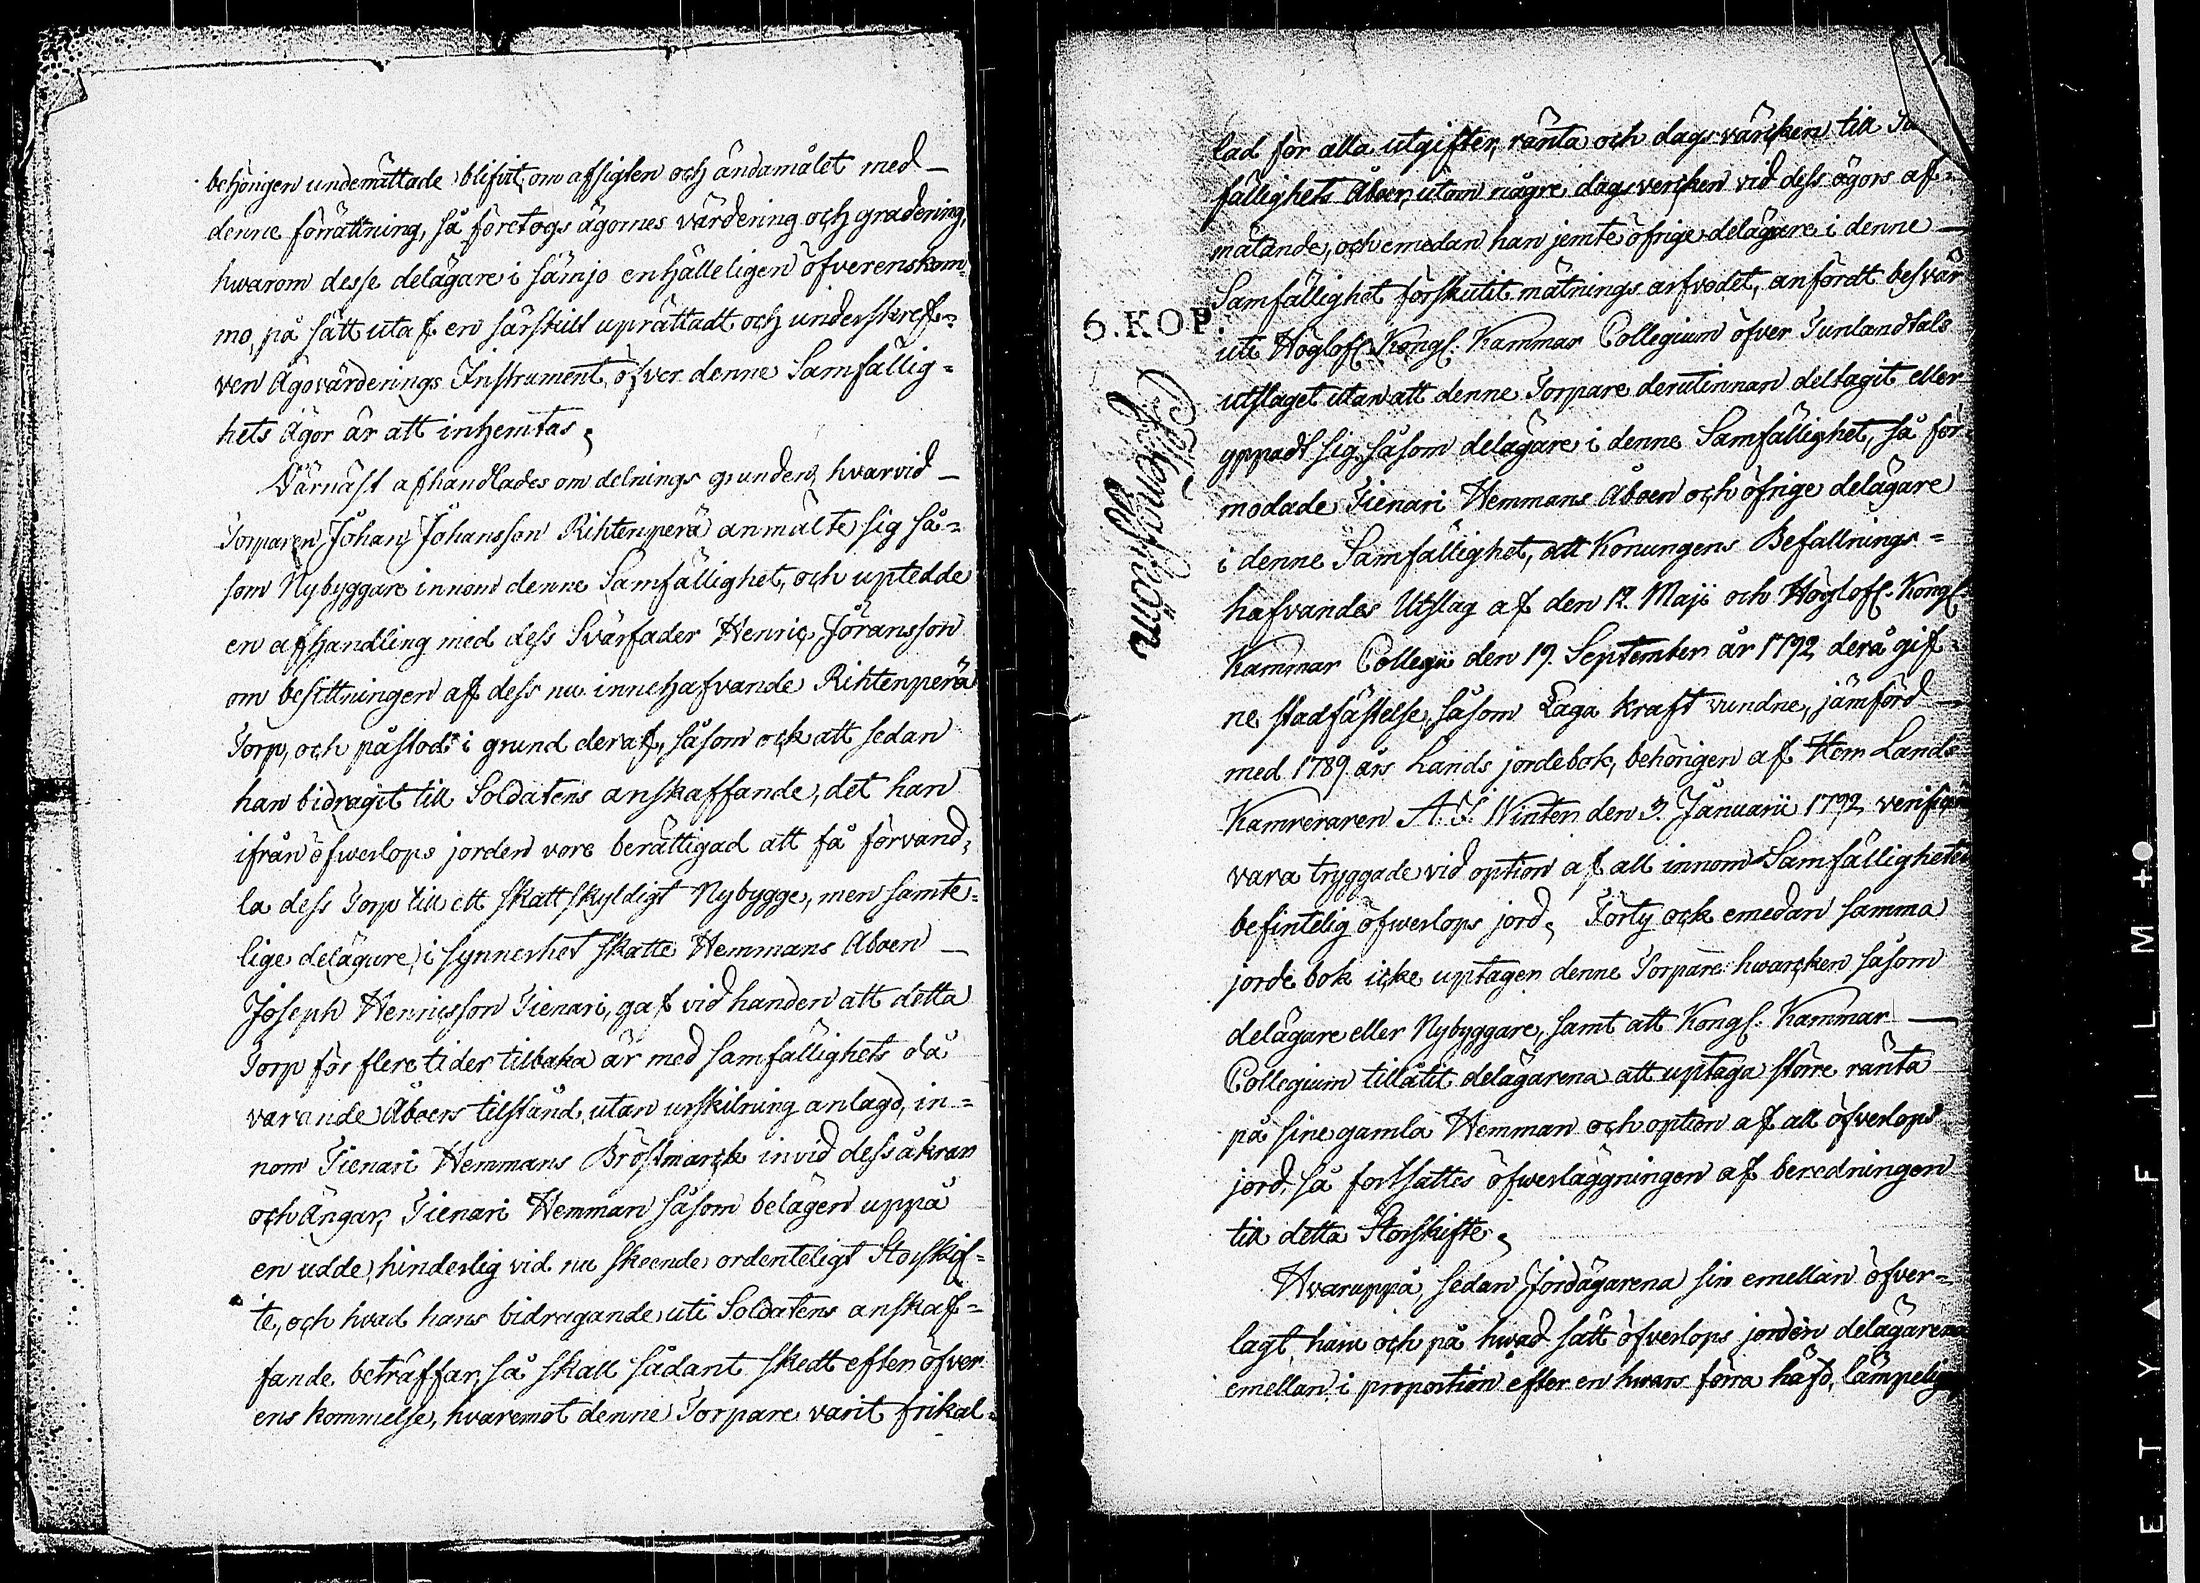 behörigen underrättade blifvit om afsigten och ändamålet med —
denne förrättning, så företogs ägornes värdering och gradering,
hwarom desse delägare i sämjo enhälleligen öfverenskom-
mo, på sätt utaf en särskilt uprättadt och underskref-
ven Ägovärderings Instrument öfver denne Samfällig-
hets Ägor är att inhemtas;
Därnäst afhandlades om delnings grunden, hvarvid —
Torparen Johan Johansson Rihtenperä anmälte sig så-
som Nybyggare innom denne Samfällighet, och uptedde
en afhandling med dess Svärfader Henric Jöransson
om besittningen af dess nu innehafvande Rihtenperä
Torp, och påstod i grund deraf, såsom ock att sedan
han bidragit till Soldatens anskaffande, det han
ifrån öfwerlops jorden vore berättigad att få förvand-
la dess Torp till ett skattskyldigt Nybygge, men samte-
lige delägare, i synnerhet Skatte Hemmans Åboen —
Joseph Henricsson Tienari, gaf vid handen att detta
Torp för flere tider tilbaka är med samfällighets då
varande Åboers tilstånd, utan urskilning anlagd, in-
nom Tienari Hemmans Bröstmarck invid dess åkrar
och Ängar, Tienari Hemman såsom belägen uppå
en udde, hinderlig vid nu skeende ordenteligt Storskif-
te, och hvad hans bidragande uti Soldatens anskaf-
fande beträffar, så skall sådant skedt efter öfver
ens kommelse, hvaremot denne Torpare varit frikal-
lad för alla utgifter, ränta och dagsvärcken till
fällighets Åboer, utom någre dagsvercken vid dess ägors af-
mätande, och emedan han jemte öfrige delägare i denne —
Samfällighet förskutit mätnings arfvodet, anfördt besvär
6. KOP.
uti Höglofl. Kongl. Kammar Collegium öfver Tunlandtals
utslaget utan att denne Torpare derutinnan deltagit eller
yppadt sig såsom delägare i denne Samfällighet, så för-
modade Tienari Hemmans Åboen och öfrige delägare
i denne Samfällighet, att Konungens Befallnings-
hafvandes Utslag af den 12. Maji och Höglofl. Kongl.
Kammar Collegii den 19. September år 1792 derå gif-
ne stadfästelse, såsom Laga kraft vundne, jämförd —
med 1789 års Lands jordebok, behörigen af Herr Lands
Kamreraren A. J. Winter den 3. Januarii 1792
vara tryggade vid option af all innom Samfälligheten
befintelig öfwerlops jord; Förty ock emedan samma
jorde bok icke uptagen denne Torpare hwarcken såsom
delägare eller Nybyggare, samt att Kongl. Kammar —
Collegium tillåtit delägarena att uptaga större ränta
på sine gamla Hemman och option af all öfverlops
jord, så fortsattes öfwerläggningen af beredningen
till detta Storskifte;
Hvaruppå, sedan Jordägarena sin emellan öfver-
lagt, huru och på hwad sätt öfverlops jorden delägarena
emellan i proportion efter en hwars förra häfd,